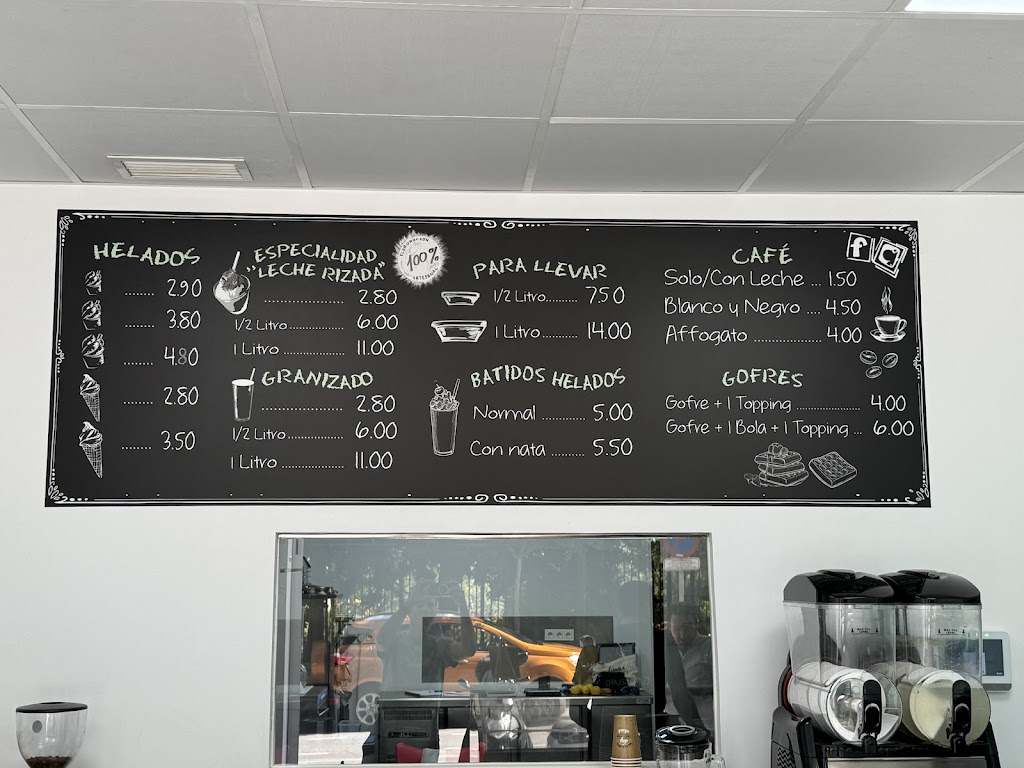 HELADOS
........ 2.90
........ 3.80
........ 4.80
........ 2.80
........ 3.50
ESPECIALIDAD
"LECHE RIZADA"
100%
...................... 2.80
1/2 Litro............... 6.00
1 Litro ................. 11.00
GRANIZADO
...................... 2.80
1/2 Litro............... 6.00
1 Litro ................. 11.00
PARA LLEVAR
1/2 Litro......... 7.50
1 Litro......... 14.00
BATIDOS HELADOS
Normal ............ 5.00
Con nata .......... 5.50
CAFÉ
Solo/Con Leche ... 1.50
Blanco y Negro .... 4.50
Affogato .................... 4.00
f
GOFRES
Gofre + 1 Topping ........................ 4.00
Gofre + 1 Bola + 1 Topping ... 6.00